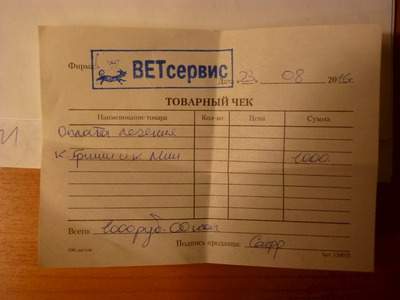 Фирма
ВЕТсервис
Дата 23 08 2016г.
ТОВАРНЫЙ ЧЕК
Наименование товара Кол-во Цена Сумма
Оплата лечения
к Гриши и к 1000.
Всего 1000 руб. 00 коп
Подпись продавца